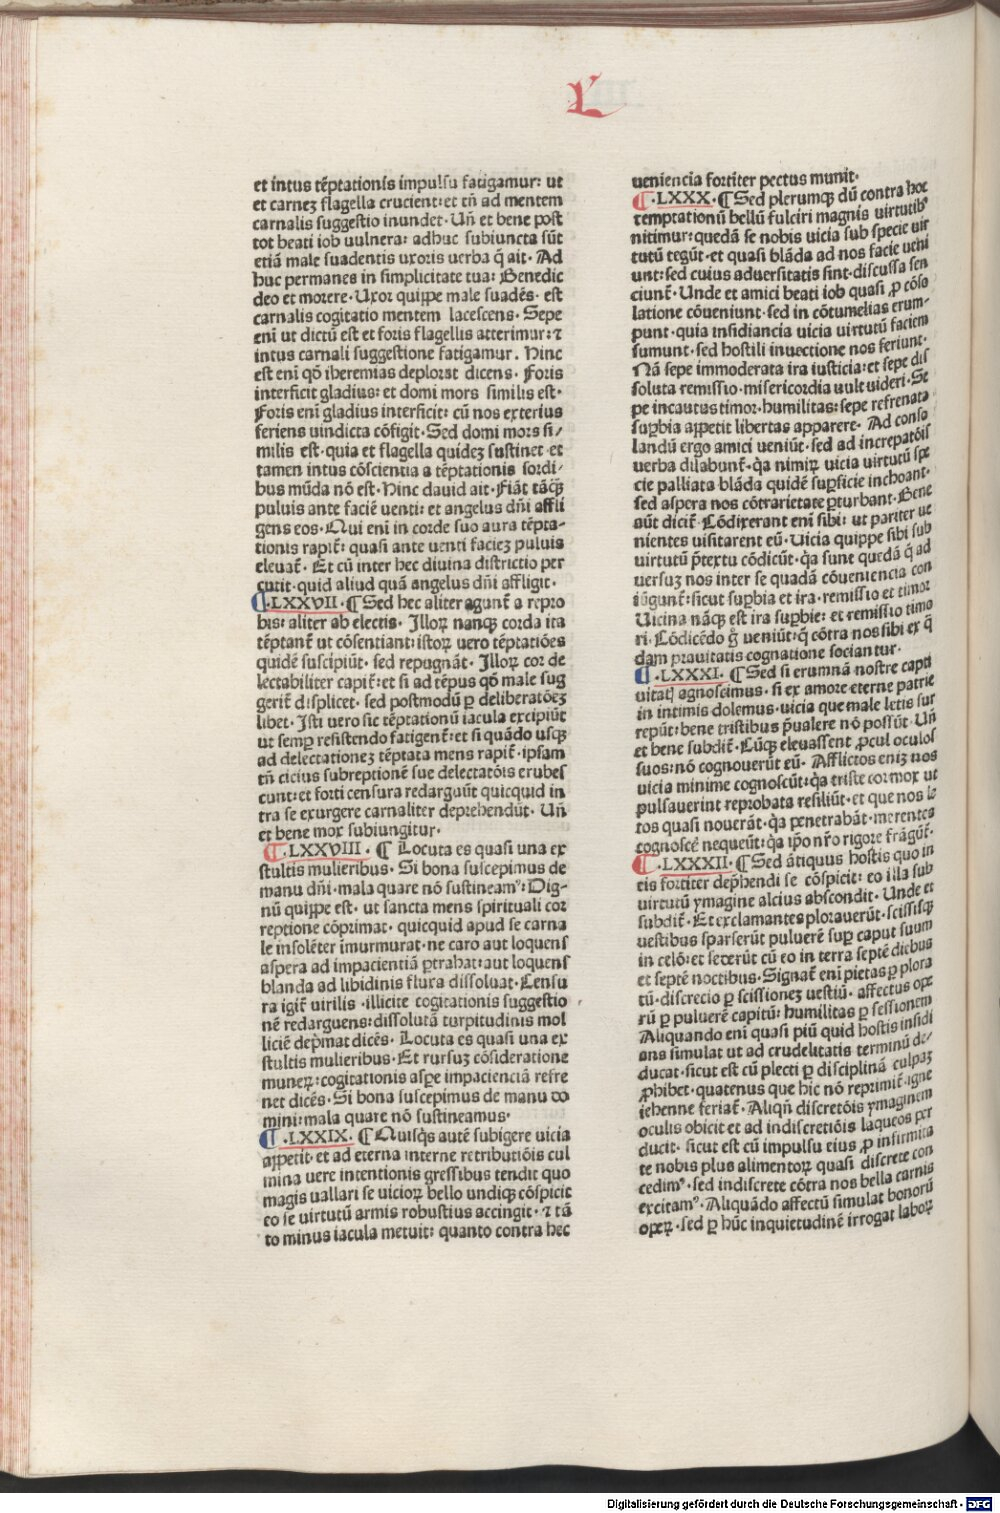 L
et intus tēptationis impulsu fatigamur: ut
et carneʒ flagella crucient: et tn̄ ad mentem
carnalis suggestio inundet· Un̄ et bene post
tot beati iob uulnera: adhuc subiuncta sūt
etiā male suadentis uxoris uerba q̄ ait· Ad
huc permanes in simplicitate tua: Benedic
deo et morere· Uxor quippe male suadēs· est
carnalis cogitatio mentem lacescens· Sepe
eni ut dictū est et foris flagellis atterimur: ⁊
intus carnali suggestione fatigamur. Hinc
est eni qō iheremias deplorat dicens· Foris
interficit gladius: et domi mors similis est·
Foris eni gladius interficit: cū nos exterius
feriens uindicta cōfigit· Sed domi mors si/
milis est· quia et flagella quideʒ sustinet et
tamen intus cōscientia a tēptationis sordi/
bus mūda nō est· Hinc dauid ait· Fiāt tāꝙ̄
puluis ante faciē uenti: et angelus dn̄i affli
gens eos· Qui eni in corde suo aura tēpta-
tionis rapit̄: quasi ante uenti facieʒ puluis
eleuat̄· Et cū inter hec diuina districtio per
cutit· quid aliud quā angelus dn̄i affligit·
¶·LXXVII·¶ Sed hec aliter agunt̄ a repro
bis: aliter ab electis· Illoꝝ nanqꝫ corda ita
tēptant̄ ut cōsentiant: istoꝝ uero tēptatiōes
quidē suscipiūt· sed repugnāt· Illoꝝ cor de
lectabiliter capit̄: et si ad tēpus qō male sug
gerit̄ displicet· sed postmodū ꝑ deliberatōeʒ
libet· Isti uero sic tēptationū iacula excipiūt
ut semꝑ resistendo fatigent̄: et si quādo usqꝫ
ad delectationeʒ tēptata mens rapit̄· ipsam
tn̄ cicius subreptionē sue delectatōis erubes
cunt: et forti censura redarguūt quicquid in
tra se exurgere carnaliter deprehendūt· Un̄
et bene mox subiungitur·
¶·LXXVIII·¶ Locuta es quasi una ex
stultis mulieribus· Si bona suscepimus de
manu dn̄i· mala quare nō sustineamꝰ: Dig-
nū quippe est· ut sancta mens spirituali cor
reptione cōprimat· quicquid apud se carna
le insolēter īmurmurat· ne caro aut loquens
aspera ad impacientiā ꝑtrahat: aut loquens
blanda ad libidinis fluxa dissoluat· Censu
ra igit̄ uirilis ·illicite cogitationis suggestio
nē redarguens: dissolutā turpitudinis mol
liciē dep̄mat dicēs· Locuta es quasi una ex
stultis mulieribus· Et rursuʒ cōsideratione
muneꝝ: cogitationis aspe impacienciā refre
net dicēs· Si bona suscepimus de manu do
mini: mala quare nō sustineamus·
¶·LXXIX·¶ Quisqs autē subigere uicia
appetit· et ad eterna interne retributiōis cul
mina uere intentionis gressibus tendit quo
magis uallari se uicioꝝ bello undiqꝫ cōspicit
eo se uirtutū armis robustius accingit· ⁊ tā
to minus iacula metuit: quanto contra hec
ueniencia fortiter pectus munit·
¶·LXXX·¶ Sed plerumqꝫ dū contra hoc
temptationū bellū fulciri magnis uirtutibꝰ
nitimur: quedā se nobis uicia sub specie uir
tutū tegūt· et quasi blāda ad nos facie ueni
unt: sed cuius aduersitatis sint· discussa sen
ciunt̄· Unde et amici beati iob quasi ꝓ cōso
latione cōueniunt· sed in cōtumelias erum-
punt· quia insidiancia uicia uirtutū faciem
sumunt· sed hostili inuectione nos feriunt·
Nā sepe immoderata ira iusticia: et sepe dis
soluta remissio· misericordia uult uideri· Se
pe incautus timor· humilitas: sepe refrenata
suꝑbia appetit libertas apparere· Ad conso
landū ergo amici ueniūt· sed ad increpatōis
uerba dilabunt̄· qa nimiꝝ uicia uirtutū spe
cie palliata blāda quidē suꝑficie inchoant·
sed aspera nos cōtrarietate ꝑturbant· Bene
aūt dicit̄ Cōdixerant eni sibi: ut pariter ue
nientes uisitarent eū· Uicia quippe sibi sub
uirtutū p̄textu cōdicūt· qa sune quedā q̄ ad
uersuʒ nos inter se quadā cōueniencia con
iūgunt̄: sicut suꝑbia et ira· remissio et timor
Uicina nāqꝫ est ira suꝑbie: et remissio timo
ri· Cōdicēdo g̊ ueniūt: q̄ cōtra nos sibi ex q̄
dam prauitatis cognatione sociantur·
¶·LXXXI·¶ Sed si erumnā nostre capti
uitatꝭ agnoscimus· si ex amore eterne patrie
in intimis dolemus· uicia que male letis sur
repūt: bene tristibus p̄ualere nō possūt· Un̄
et bene subdit̄· Cūqꝫ eleuassent ꝓcul oculos
suos: nō cognouerūt eū· Afflictos eniʒ nos
uicia minime cognoscūt: qa triste cor mox ut
pulsauerint reprobata resiliūt· et que nos le
tos quasi nouerāt· qa penetrabāt· merentes
cognoscē nequeūt: qa ipō nr̄o rigore frāgūt̄·
¶·LXXXII·¶ Sed ātiquus hostis quo in
eis fortiter dep̄hendi se cōspicit: eo illa sub
uirtutū ymagine alcius abscondit· Unde et
subdit̄· Et exclamantes plorauerūt· scissisqꝫ
uestibus sparserūt puluerē suꝑ caput suum
in celō: et sederūt cū eo in terra septē diebus
et septē noctibus· Signat̄ eni pietas ꝑ plora
tū· discrecio ꝑ scissioneʒ uestiū· affectus ope
rū ꝑ puluerē capitū: humilitas ꝑ sessionem
Aliquando eni quasi piū quid hostis insidi
ans simulat ut ad crudelitatis terminū de/
ducat· sicut est cū plecti ꝑ disciplinā culpaʒ
ꝓhibet· quatenus que hic nō reprimit̄· igne
iehenne feriat̄· Aliqn̄ discretōis ymaginem
oculis obicit et ad indiscretiōis laqueos per
ducit· sicut est cū impulsu eius ꝓ infirmita
te nobis plus alimentoꝝ quasi discrete con
cedimꝰ· sed indiscrete cōtra nos bella carnis
excitamꝰ· Aliquādo affectū simulat bonorū
opeꝝ· sed ꝑ hūc inquietudinē irrogat laboꝝ
Digitalisierung gefördert durch die Deutsche Forschungsgemeinschaft - DFG